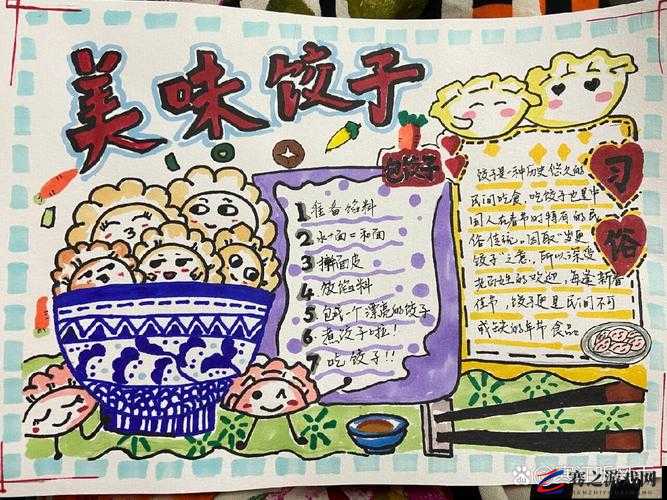 美味饺子
包饺子
1 准备馅料
2 水+面=和面
3 擀面皮
4 放馅料
5 包成一个漂亮的饺子
6. 煮饺子啦!
7 吃饺子!!
习俗
饺子是一种历史悠久的
民间吃食,吃饺子也是中
国人在春节时特有的民
俗传统,因取"更
饺子"之意,所以深受
老百姓的欢迎,每逢新春
佳节,饺子更是民间不可
或缺的年片食品